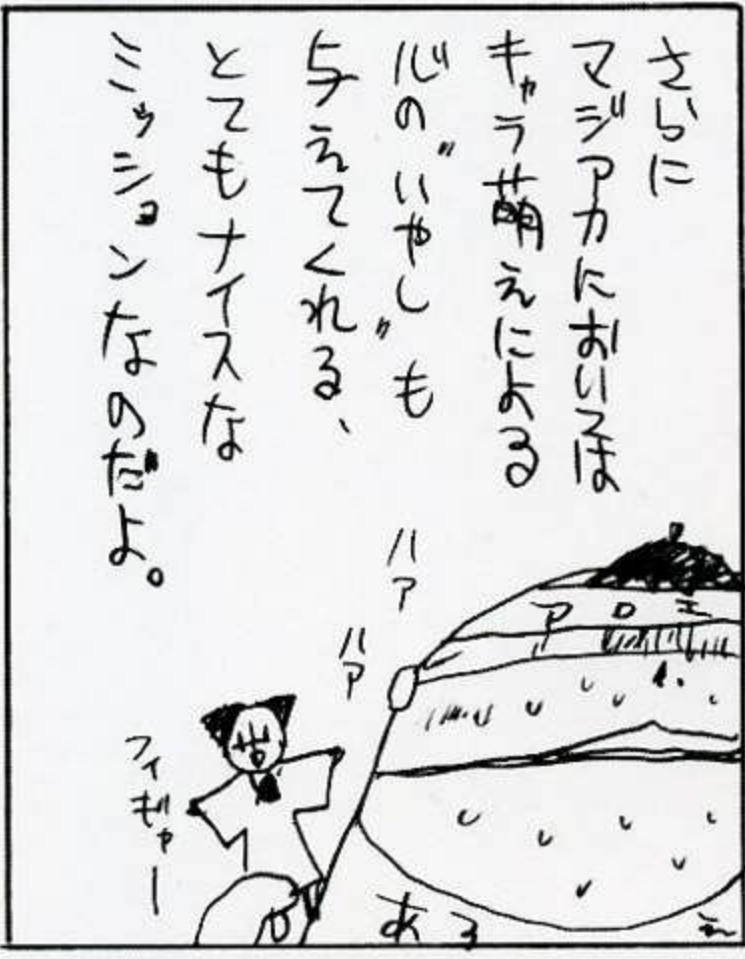 さらに
マジアカにおいては
キャラ萌えによる
心の"いやし"も
与えてくれる、
とてもナイスな
ミッションなのだよ。
アロエ
ハア
ハア
フィギャー
あろえ